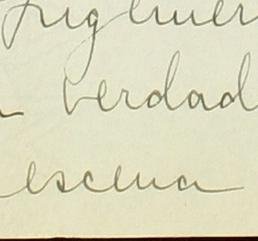 verdad
escena